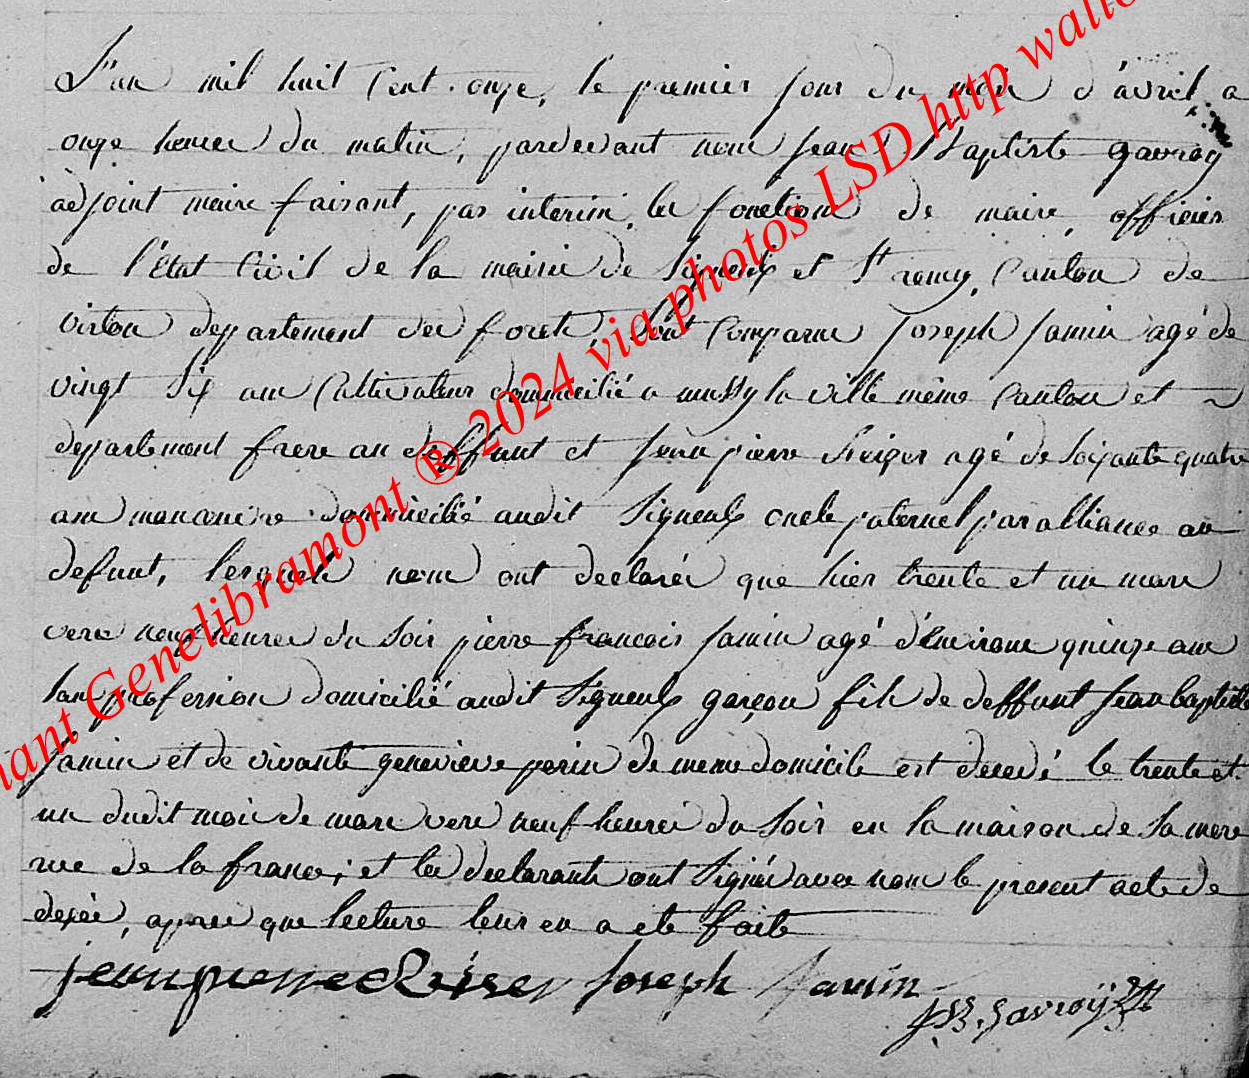 L'an mil huit Cent onze, le premier jour du mois d'avril a
onze heures du matin, pardevant nous jean Baptiste gavroy
adjoint maire faisant, par interim, les fonctions de maire, officier
de l'Etat Civil de la mairie de Signeulx et St remy, Canton de
virton departement des forets, Sont Comparus Joseph Jamin agé de
vingt Six ans Cultivateur domicilié a mussy la ville même Canton et
departement frere au deffunt et jean pierre agé de Soixante quatre
ans domicilié audit Signeulx oncle paternel par alliance au
defunt, lesquels nous ont declarés que hier trente et un mars
vers neuf heures du Soir pierre francois Jamin agé d'environs quinze ans
Sans profession domicilié audit Signeulx garçon fils de deffunt Jean baptiste
Jamin et de vivante genevieve perin de meme domicile est decedé le trente et
un dudit mois de mars vers neuf heures du Soir en la maison de Sa mere
rue de la france; et les declarants ont Signés avec nous le present acte de
decés, apres que lecture leur en a ete faite
jean pierre Joseph Jamin
J.B. Gavroÿ
nant Genelibramont ® 2024 via photos LSD http wallo